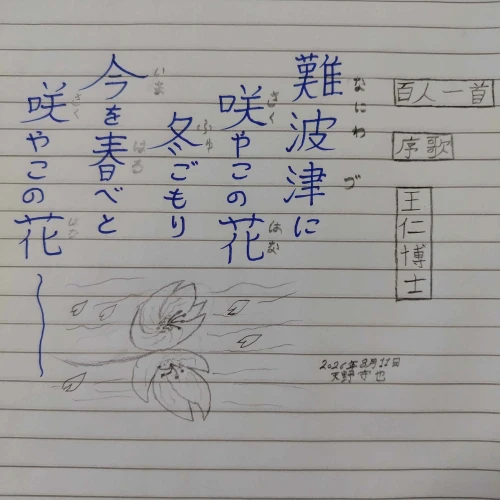 百人一首
序歌
王仁博士
難波津に
なにわ づ
咲やこの花
さく はな
冬ごもり
ふゆ
今を春べと
いま はる
咲やこの花
さく はな
8月11日